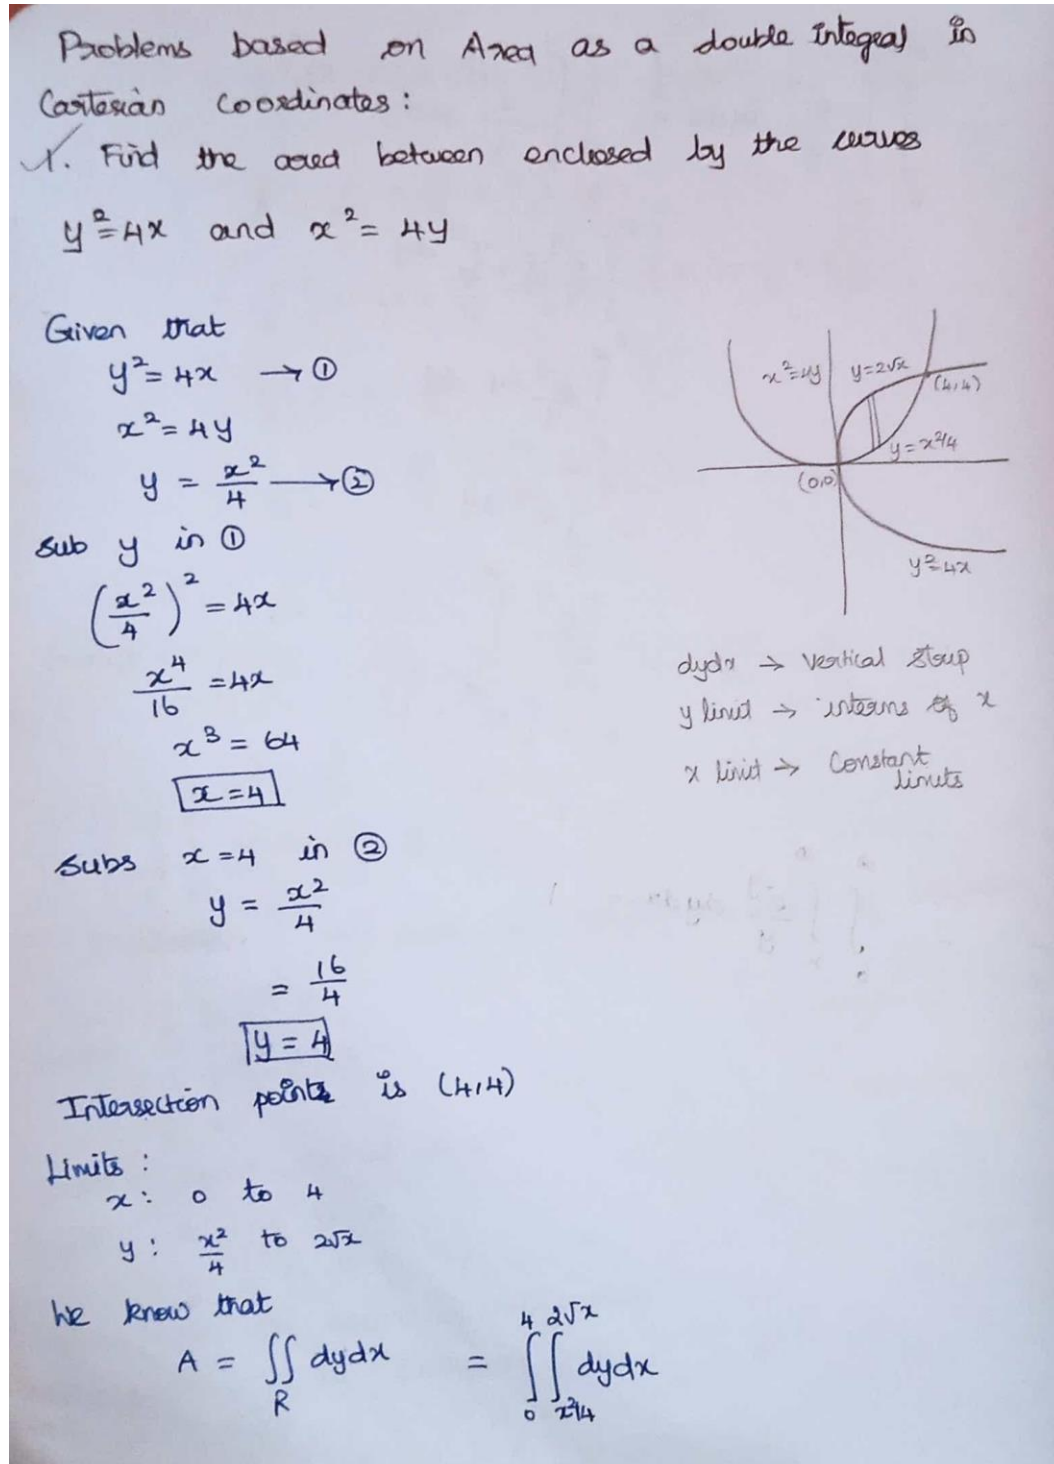 Problems based on Area as a double Integral in
Cartesian Coordinates:
1. Find the area between enclosed by the curves
y²=4x and x²=4y
Given that
y²=4x → ①
x²=4y
y = x²/4 → ②
Sub y in ①
(x²/4)² = 4x
x⁴/16 = 4x
x³ = 64
x=4
Subs x=4 in ②
y = x²/4
= 16/4
y = 4
Intersection points is (4,4)
Limits:
x: 0 to 4
y: x²/4 to 2√x
We know that
A = ∬_R dydx = ∫₀⁴ ∫_{x²/4}^{2√x} dydx
x²=4y
y=2√x
(4,4)
y=x²/4
(0,0)
y²=4x
dydx → Vertical Strip
y limit → interms of x
x limit → Constant
limits